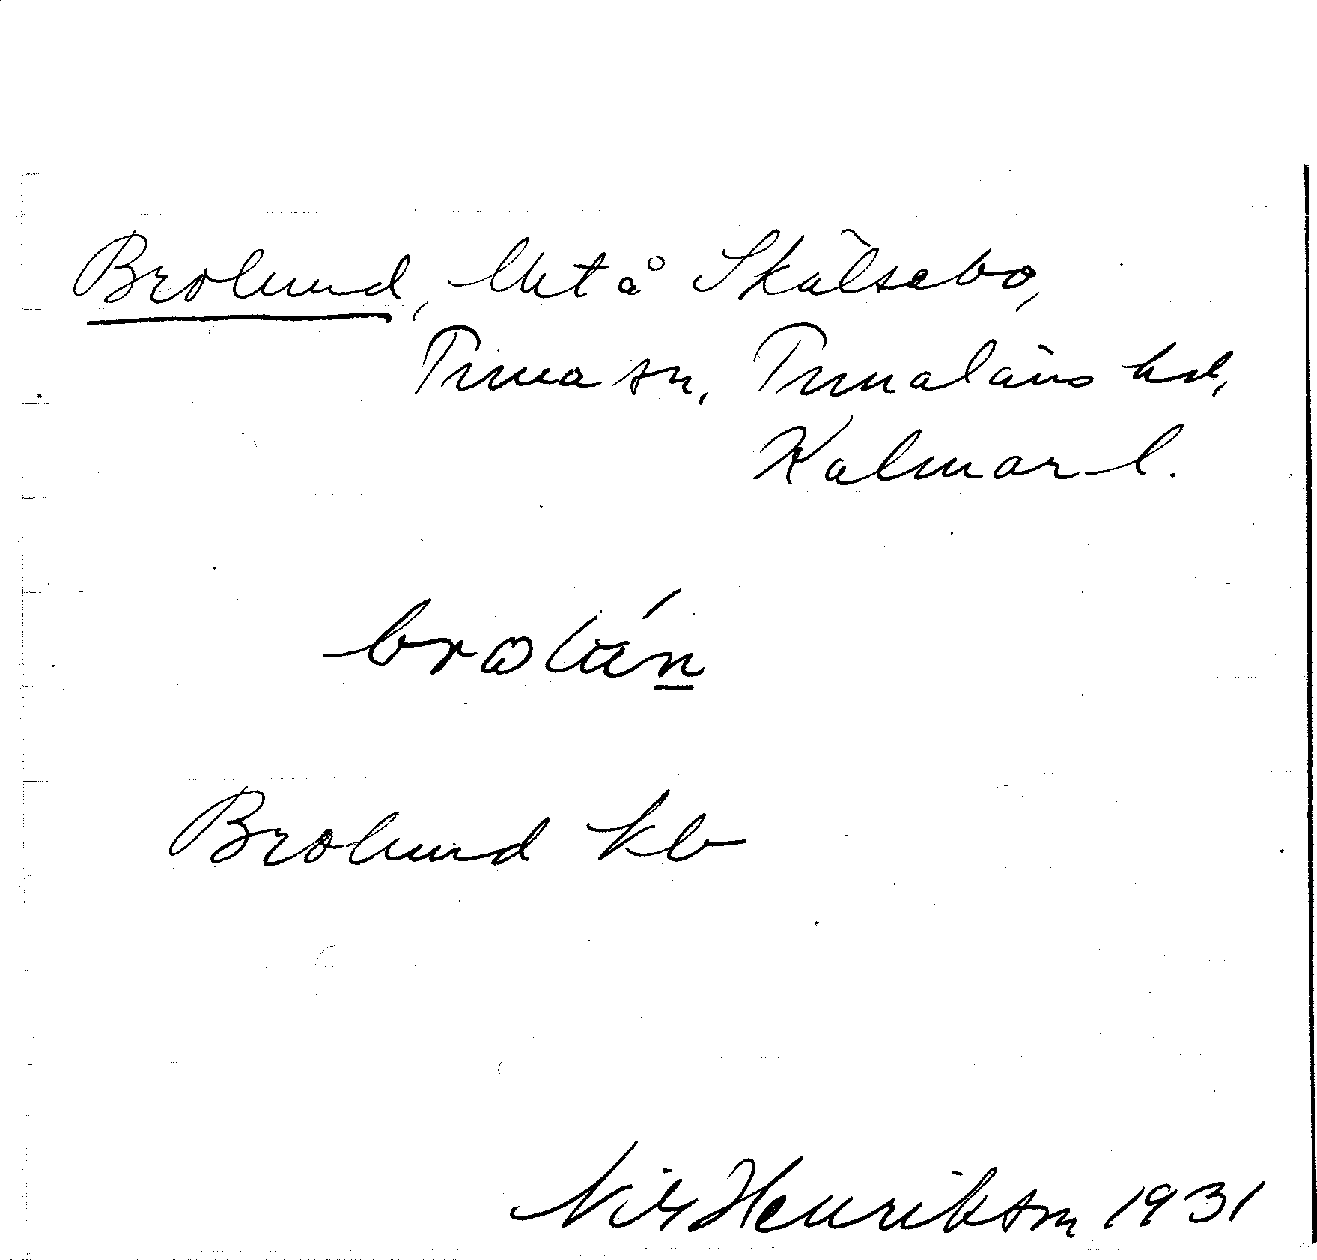 Brolund, Ut å Skälsebo,
Tuna sn, Tunaläns hd,
Kalmar l.
Brolund kb
Nils Henrikson 1931